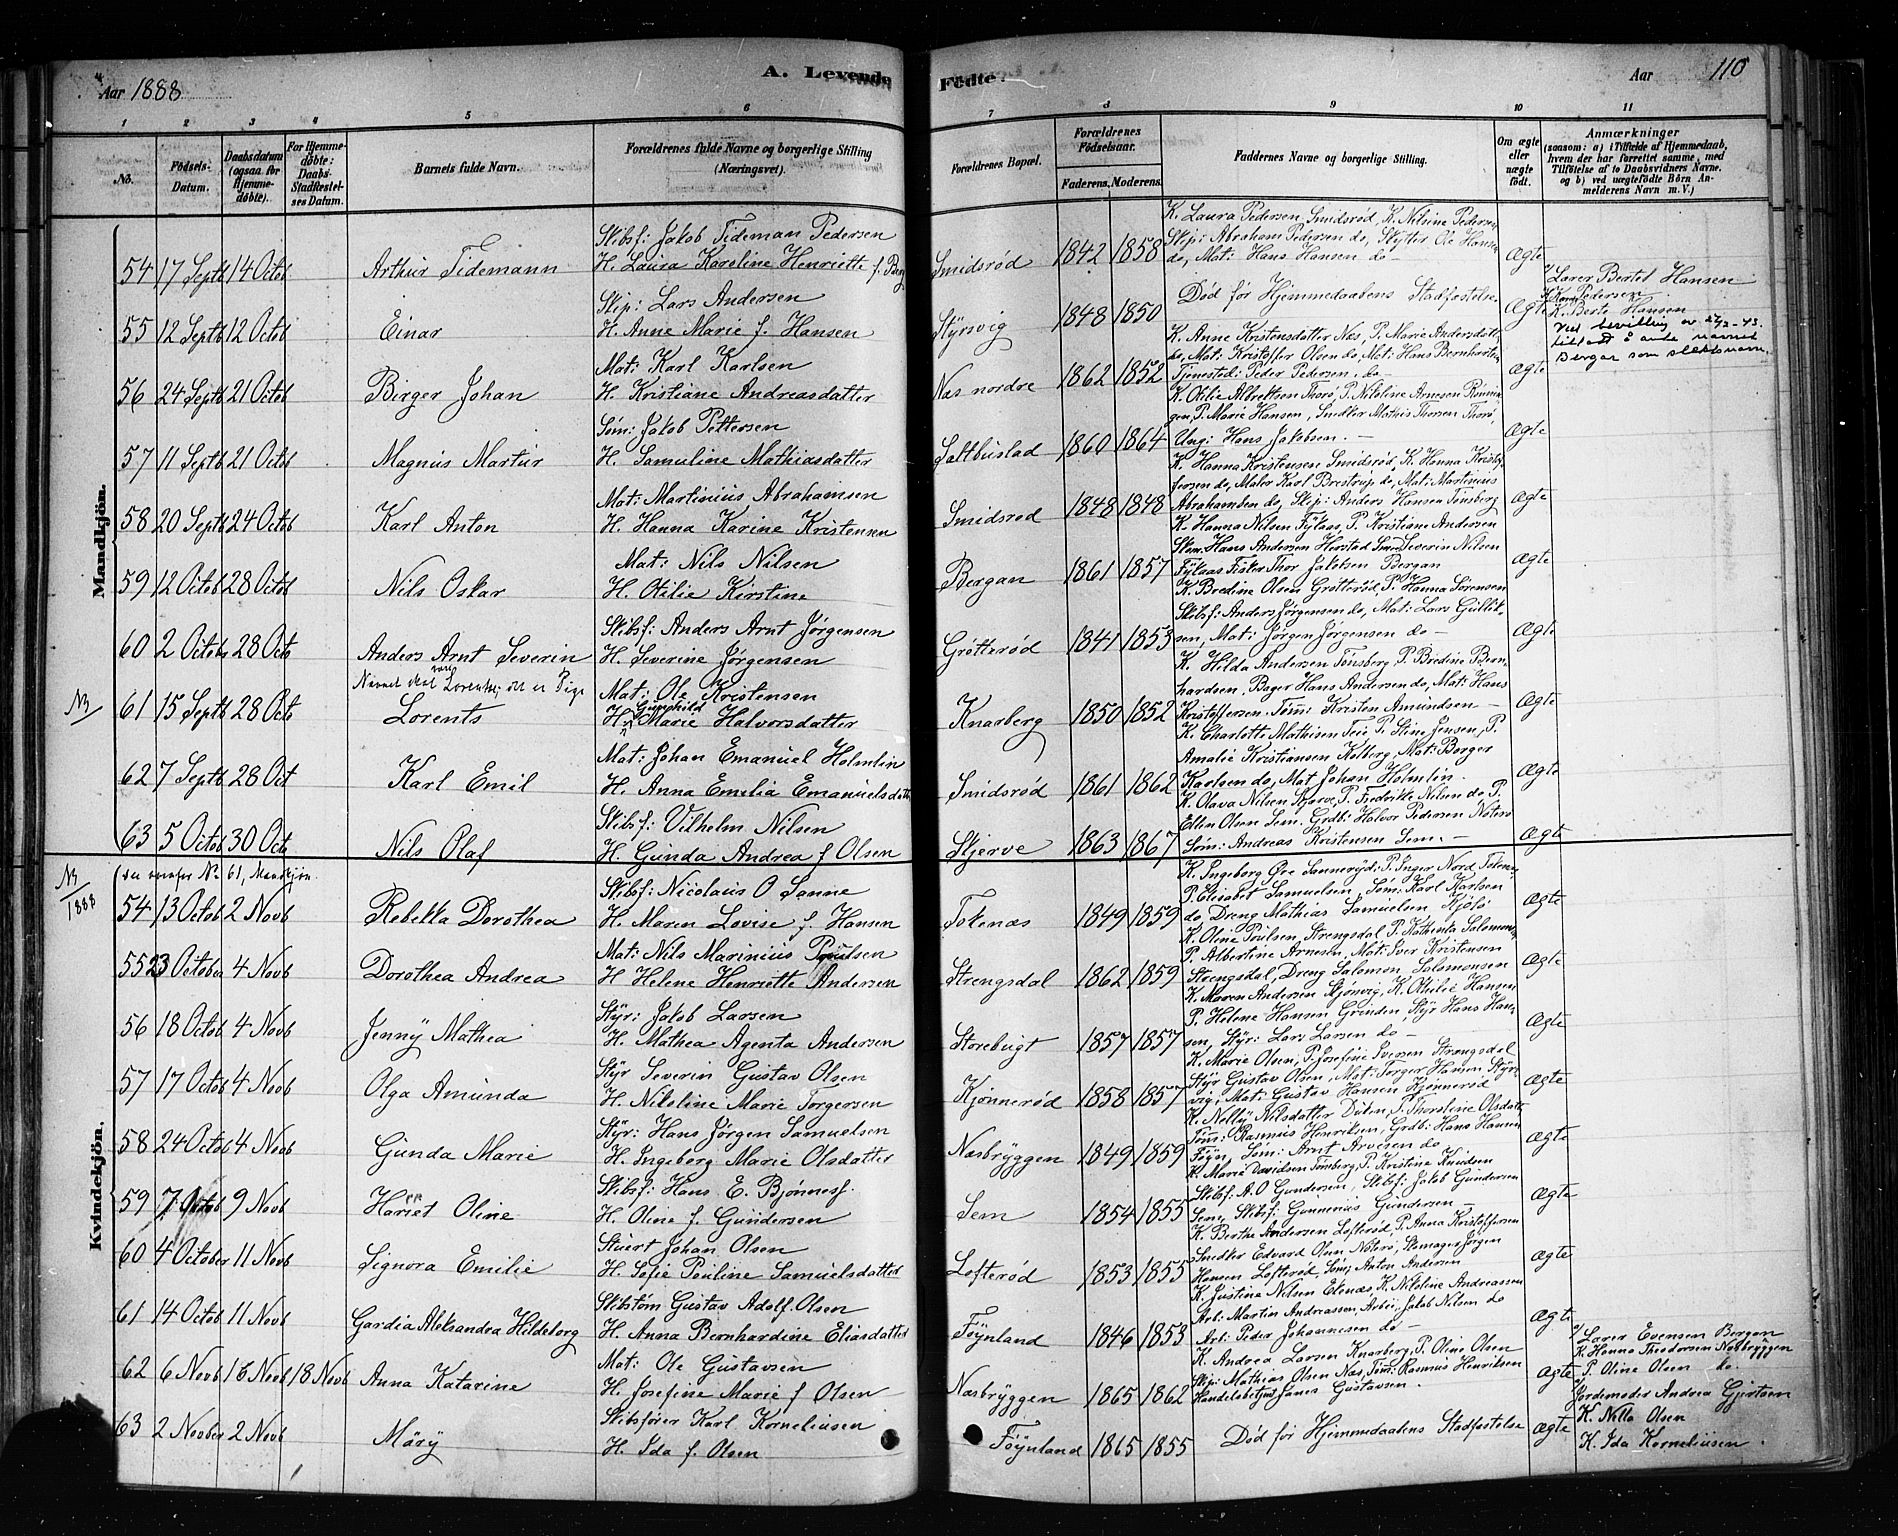 Aar 1888
A. Levende
Födte.
Aar
110
1
2
3
4
5
6
7
8
9
10
11
No.
Födsels-Datum.
Daabsdatum (ogsaa for Hjemme-döbte).
For Hjemme-döbte: Daabs-Stadfæstel-ses Datum.
Barnets fulde Navn.
Forældrenes fulde Navne og borgerlige Stilling (Næringsvei).
Forældrenes Bopæl.
Forældrenes Födselsaar.
Faderens.
Moderens.
Faddernes Navne og borgerlige Stilling.
Om ægte eller uægte födt.
Anmærkninger
(saasom: a) i Tilfælde af Hjemmedaab,
hvem der har forrettet samme, med
Tilföielse af to Daabsvidners Navne.
og b) ved uægtefödte Börn An-
melderens Navn m. V.)
Mandkjön.
Skibsf: Jakob Tideman Pedersen
54 17 Septb 14 Octob Arthur Tidemann H. Laura Karoline Henriette f. Berg Smidsrød 1842 1858 Ægte
K. Laura Pedersen Smidsrød, K. Nilsine Pedersen
Skip: Abraham Pedersen do, Skytter Ole Hansen
do, Mat: Hans Hansen do
Skip: Lars Andersen
55 12 Septb 12 Octob Einar H. Anne Marie f. Hansen Styrsvig 1848 1850 Død før Hjemmedaabens Stadfæstelse Ægte
Lærer Bertel Hansen
K. Berte Hansen
Ved bevilling av 27/2-43.
tillatt å anta navnet
Bergan som slektsnavn.
Mat: Karl Karlsen
56 24 Septb 21 Octob Birger Johan H. Kristiane Andreasdatter Næs nordre 1862 1852 Ægte
K. Anne Kristensdatter Næs, P. Marie Andersdatter
do, Mat: Kristoffer Olsen do, Mat: Hans Bernhartsen
Tjenestd: Peder Pedersen. do
Søm: Jakob Pettersen
57 11 Septb 21 Octob Magnus Martur H. Samuline Mathiasdatter Saltbustad 1860 1864 Ægte
K. Otilie Albretsen Thorø, P. Nikoline Arnesen Rønnin-
gen, P. Marie Hansen, Snedker Mathis Thorsen Thorø,
Ung: Hans Jakobsen.
Mat: Martinius Abrahamsen
58 20 Septb 24 Octob Karl Anton H. Hanna Karine Kristensen Smidsrød 1848 1848 Ægte
K. Hanna Kristensen Smidsrød, K. Hanna Kristof-
fersen do, Maler Karl Brestrup do, Mat: Martinius
Abrahamsen do, Skip: Anders Hansen Tønsberg
Mat: Nils Nilsen
59 12 Octob 28 Octob Nils Oskar H. Otilie Kirstine Bergan 1861 1857 Ægte
K. Hanna Nilsen Fyllaas, P. Kristiane Andersen
Skom: Hans Andersen Herstad Smed Severin Nilsen
Fyllaas Fisker Thor Jakobsen Bergan
Skibsf: Anders Arnt Jørgensen
60 2 Octob 28 Octo Anders Arnt Severin H. Severine Jørgensen Grøtterød 1841 1853 Ægte
K. Bredine Olsen Grøtterød, P. Hanna Sørensen
Skibsf: Anders Jørgensen do, Mat: Lars Gullik-
sen, Mat: Jørgen Jørgensen do
Navnet skal være Lorentse; det er Pige
Mat: Ole Kristensen
NB 61 15 Septb 28 Octo Lorents H. Gunnhild Marie Halvorsdatter Knarberg 1850 1852 Ægte
K. Hilda Andersen Tønsberg, P. Bredine Bern-
hardsen, Bager Hans Andersen do, Mat: Hans
Kristoffersen. Tøm: Kristen Amundsen
Mat: Johan Emanuel Holmlin
62 7 Septb 28 Oct Karl Emil H. Anna Emelia Emanuelsdatter Smidsrød 1861 1862 Ægte
K. Charlotte Mathisen Teie P. Stine Jensen, P.
Amalie Kristiansen Kolberg, Mat: Berger
Karlsen do, Mat Johan Holmlin.
Skibsf: Vilhelm Nilsen
63 5 Octob 30 Octo Nils Olaf H. Gunda Andrea f Olsen Skjerve 1863 1867 Ægte
K. Olava Nilsen Skjerve, P. Fredrikke Nilsen do P.
Ellen Olsen Sem. Grdb: Halvor Pedersen Noterø
Søm: Andreas Kristensen Sem.
Kvindekjön.
NB/1888 (se ovenfor No 61, Mandkjøn.
Skibsf: Nicolaus O Sanne
54 13 Octob 2 Novb Rebekka Dorothea H. Maren Lovise f. Hansen Tokenæs 1849 1859 Ægte
K. Ingeborg Øre Sannerød: P. Inger Nord Tokenæs
P. Elisabet Samuelsen, Søm: Karl Karlsen
do, Dreng Mathias Samuelsen Kjøl
Mat: Nils Marinius Poulsen
55 23 October 4 Novb Dorothea Andrea H Helene Henriette Andersen Strengsdal 1862 1859 Ægte
K. Oline Poulsen, Strengsdal, P. Kathinka Salomonsen
P. Albertine Arnesen, Mat: Iver Kristensen
Strengsdal, Dreng Salomon Salomonsen
Styr: Jakob Larsen
56 18 Octob 4 Novb Jenny Mathea H. Mathea Agenta Andersen Storebugt 1857 1857 Ægte
K. Maren Andersen Stjønvig, K. Otilie Hansen
P. Helene Hansen Grinden, Styr Hans Han-
sen, Styr: Lars Larsen do
Styr Severin Gustav Olsen
57 17 Octob 4 Novb Olga Amunda H. Nikoline Marie Torgersen Kjønnerød 1858 1857 Ægte
K. Marie Olsen, P. Josefine Iversen Strengsdal
Styr Gustav Olsen, Mat: Torger Hansen Styrs-
vig, Mat: Gustav Hansen Kjønnerød
Styr: Hans Jørgen Samuelsen
58 24 Octob 4 Novb Gunda Marie H. Ingeborg Marie Olsdatter Næsbryggen 1849 1859 Ægte
K. Nelly Nilsdatter Duken, P. Thorstine Olsdatter
Tøm: Rasmus Henriksen, Grdb: Hans Hansen
Føyn, Søm: Arnt Arvesen do
Skibsf: Hans E. Bjønnes f.
59 7 Octob 9 Novb Harriet Oline H. Oline f. Gundersen Sem 1854 1855 Ægte
K. Marie Davidsen Tønsberg, P. Kristine Knudsen
Skibsf. A. O Gundersen, Skibsf: Jakob Gundersen
Sem, Skibsf: Gunnerius Gundersen
Stuert Johan Olsen
60 4 October 11 Novb Signora Emilie H. Sofie Pouline Samuelsdatter Lofterød 1853 1855 Ægte
K. Berthe Andersen Lofterød, P. Anna Kristoffersen
Snedker Edvard Olsen Noterø, Skomager Jørgen
Hansen Lofterød, Søm: Anton Andersen
Skibstøm Gustav Adolf Olsen
61 14 Octob 11 Novb Gardia Aleksandra Hildeborg H. Anna Bernhardine Eliasdatter Føynland 1846 1853 Ægte
K. Justina Nilsen Ekenæs, K. Nikoline Andreassen
Arb: Martin Andreassen, Arbei: Jakob Nilsen do
Arb: Peder Johannesen do
Mat: Ole Gustavsen
62 6 Novb 16 Novb 18 Novb Anna Katarine H. Josefine Marie f Olsen Næsbryggen 1865 1862 Ægte
K. Andrea Larsen Knarberg, P. Oline Olsen
Skip: Mathias Olsen Næs, Tøm: Rasmus Henriksen
Handelsbetjent Janes Gustavsen.
Lærer Evensen Bergan
K. Hanna Theodorsen Næsbryggen
P. Oline Olsen do.
Skibsfører Karl Korneliusen
63 2 Novber 2 Novb Mary H. Ida f. Olsen Føynland 1865 1855 Død før Hjemmedaabens Stadfæstelse Ægte
Jordemoder Andrea Gjertsen
K. Nella Olsen
K. Ida Korneliusen